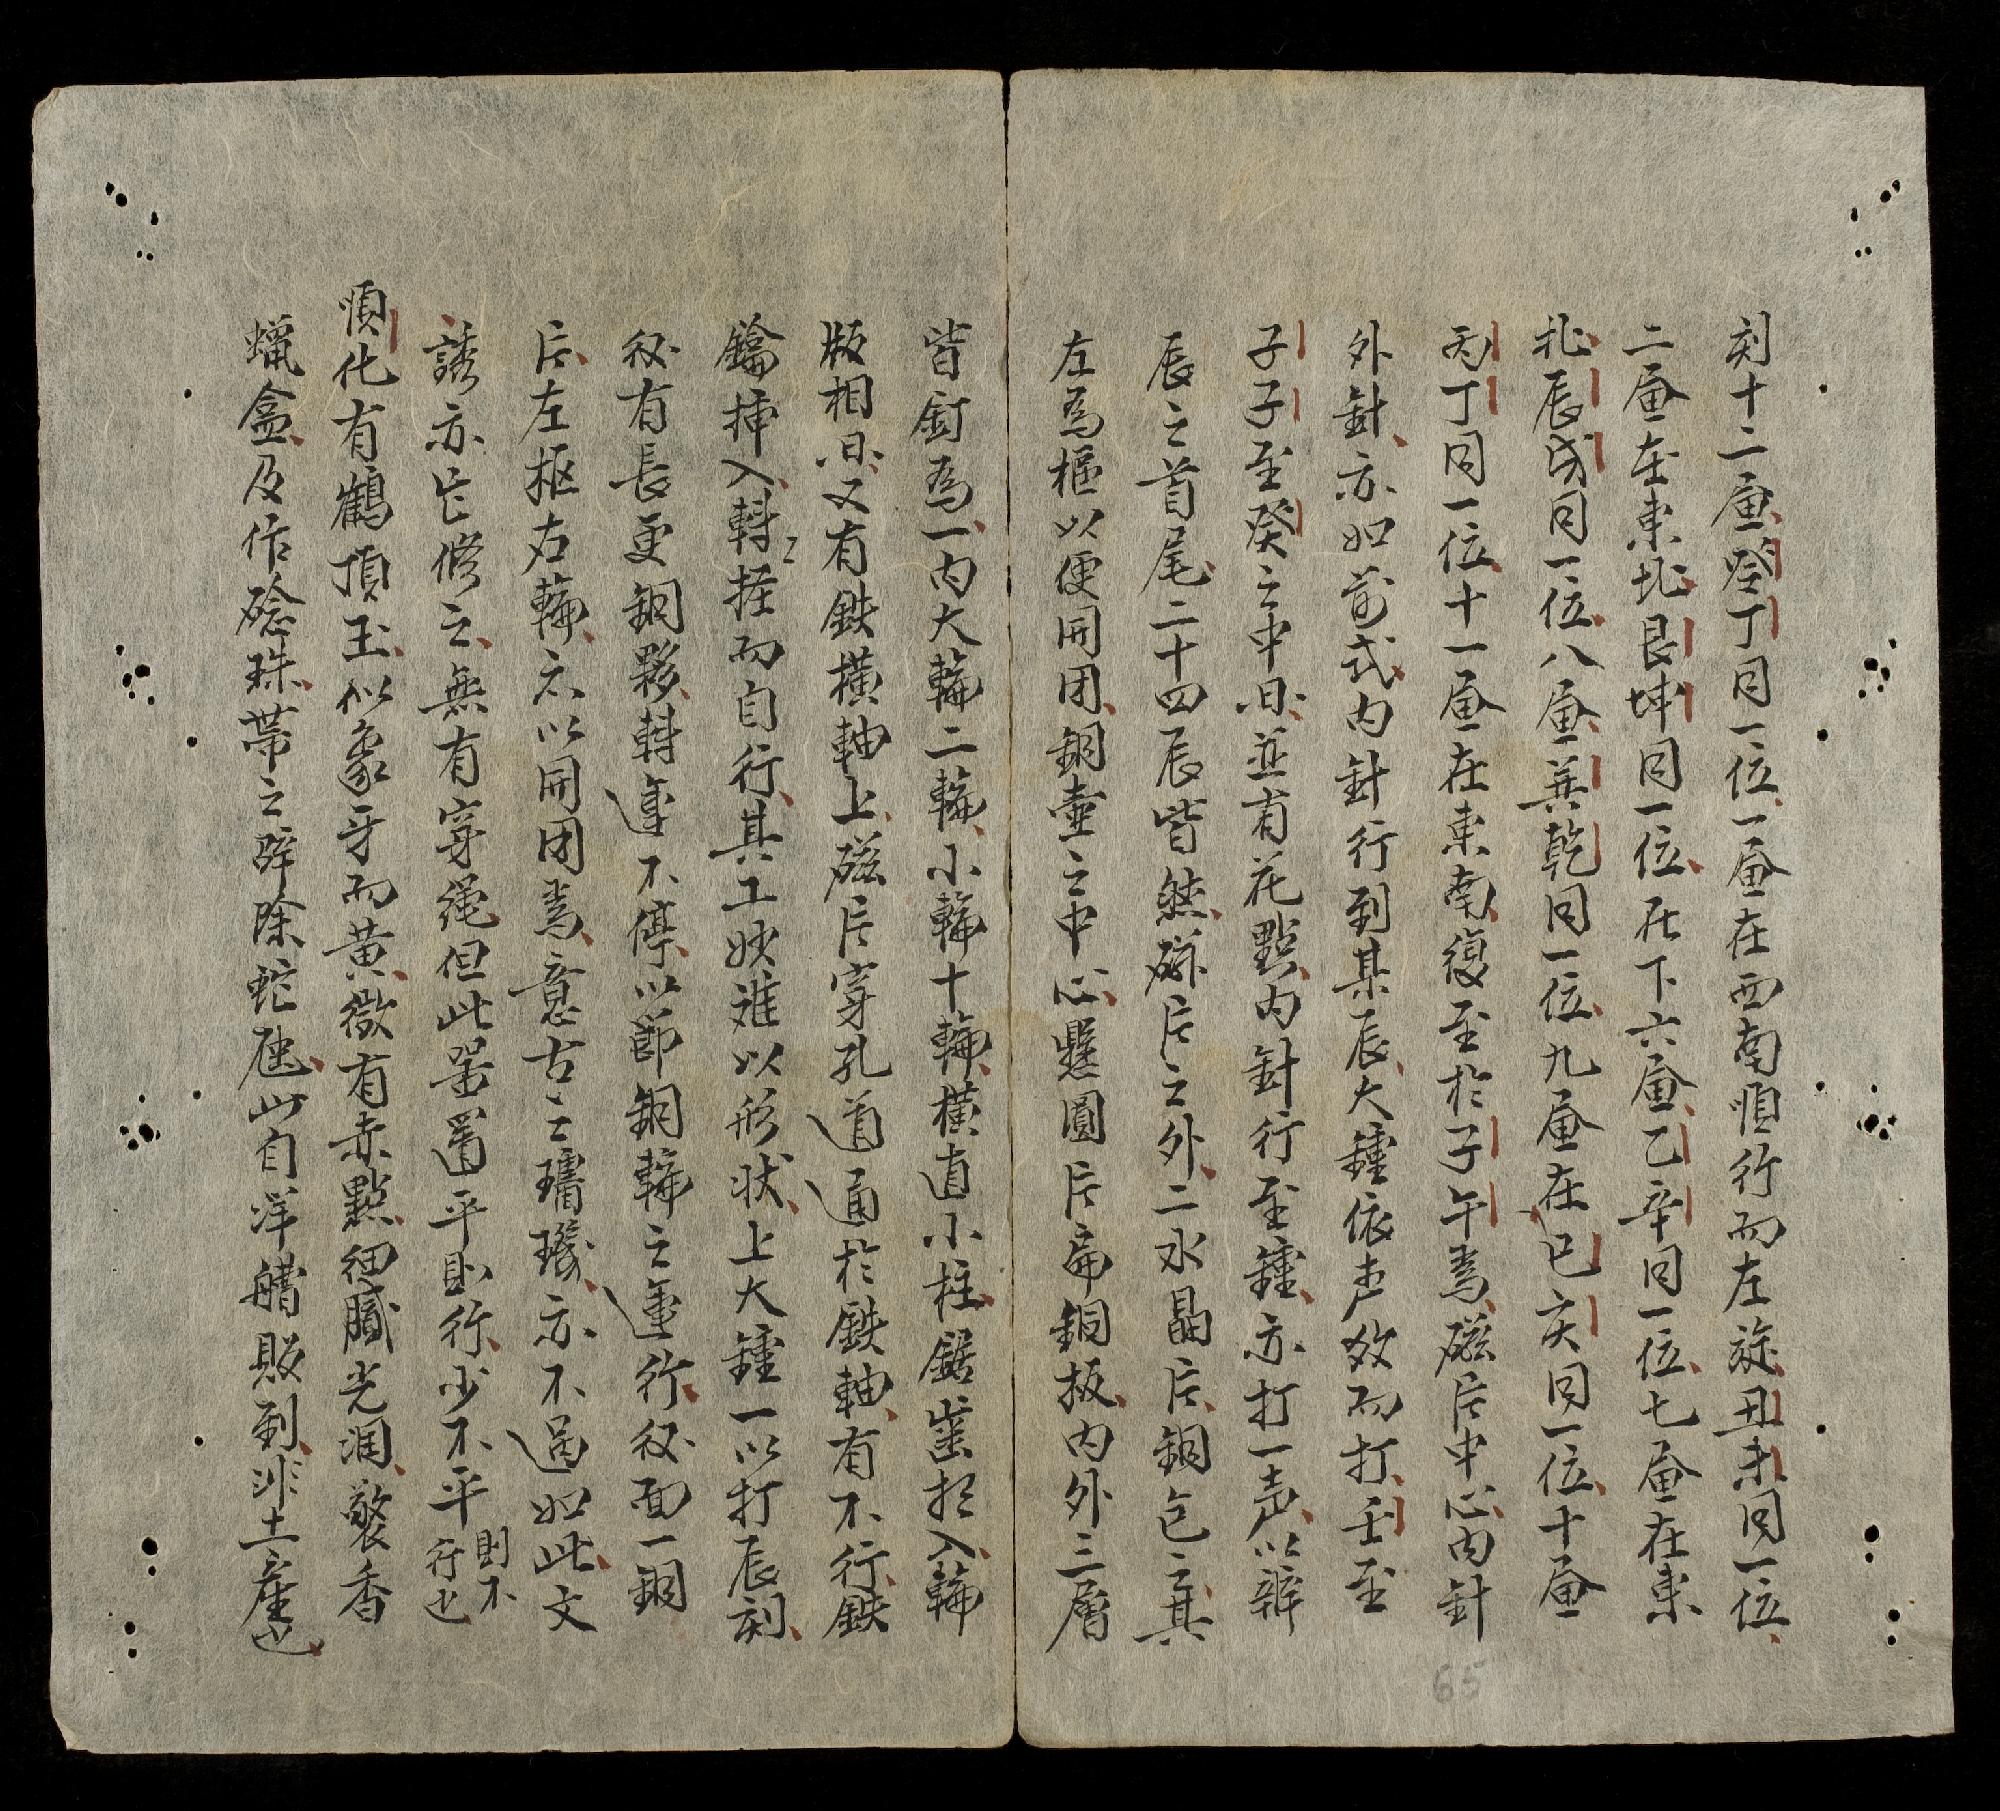 刻十二畫癸丁同一位一畫在西南順行而左旋丑未同一位
二畫在東北艮坤同一位在下六畫乙辛同一位七畫在東
北辰戌同一位八畫巽乾同一位九畫在巳亥同一位十畫
丙丁同一位十一畫在東南復至於子午焉磁片中心内針
外針亦如前式内針行到某辰大鍾依声效而打壬至
子子至癸之中曰並有花點内針行至鍾亦打一声以辨
辰之首尾二十四辰皆然磁片之外二水晶片銅包之其
左爲樞以便開闭銅壷之中心懸圓片扁銅扳内外三層
皆釘爲一内大輪二輪小輪十輪横直小柱鋸崔於入輪
版相曰又有鉄横軸上磁片穿孔道通於鉄軸有不行鉄
鑰挿入轉捱而自行其工妙难以形状上大鍾一以打辰刻
後有長更銅夥轉運不停以節銅輪之運行後面一銅
片左枢右輪亦以開闭焉意古之璿璣亦不過如此文
誘亦它修之無有穿绳但此噐置平則行少不平則不行也
順化有鶴頂玉似象牙而黄徴有赤點细膩光润襲香
蠟盒及作念珠帶之辟除蛇虺此自洋艚販到非土産也
65